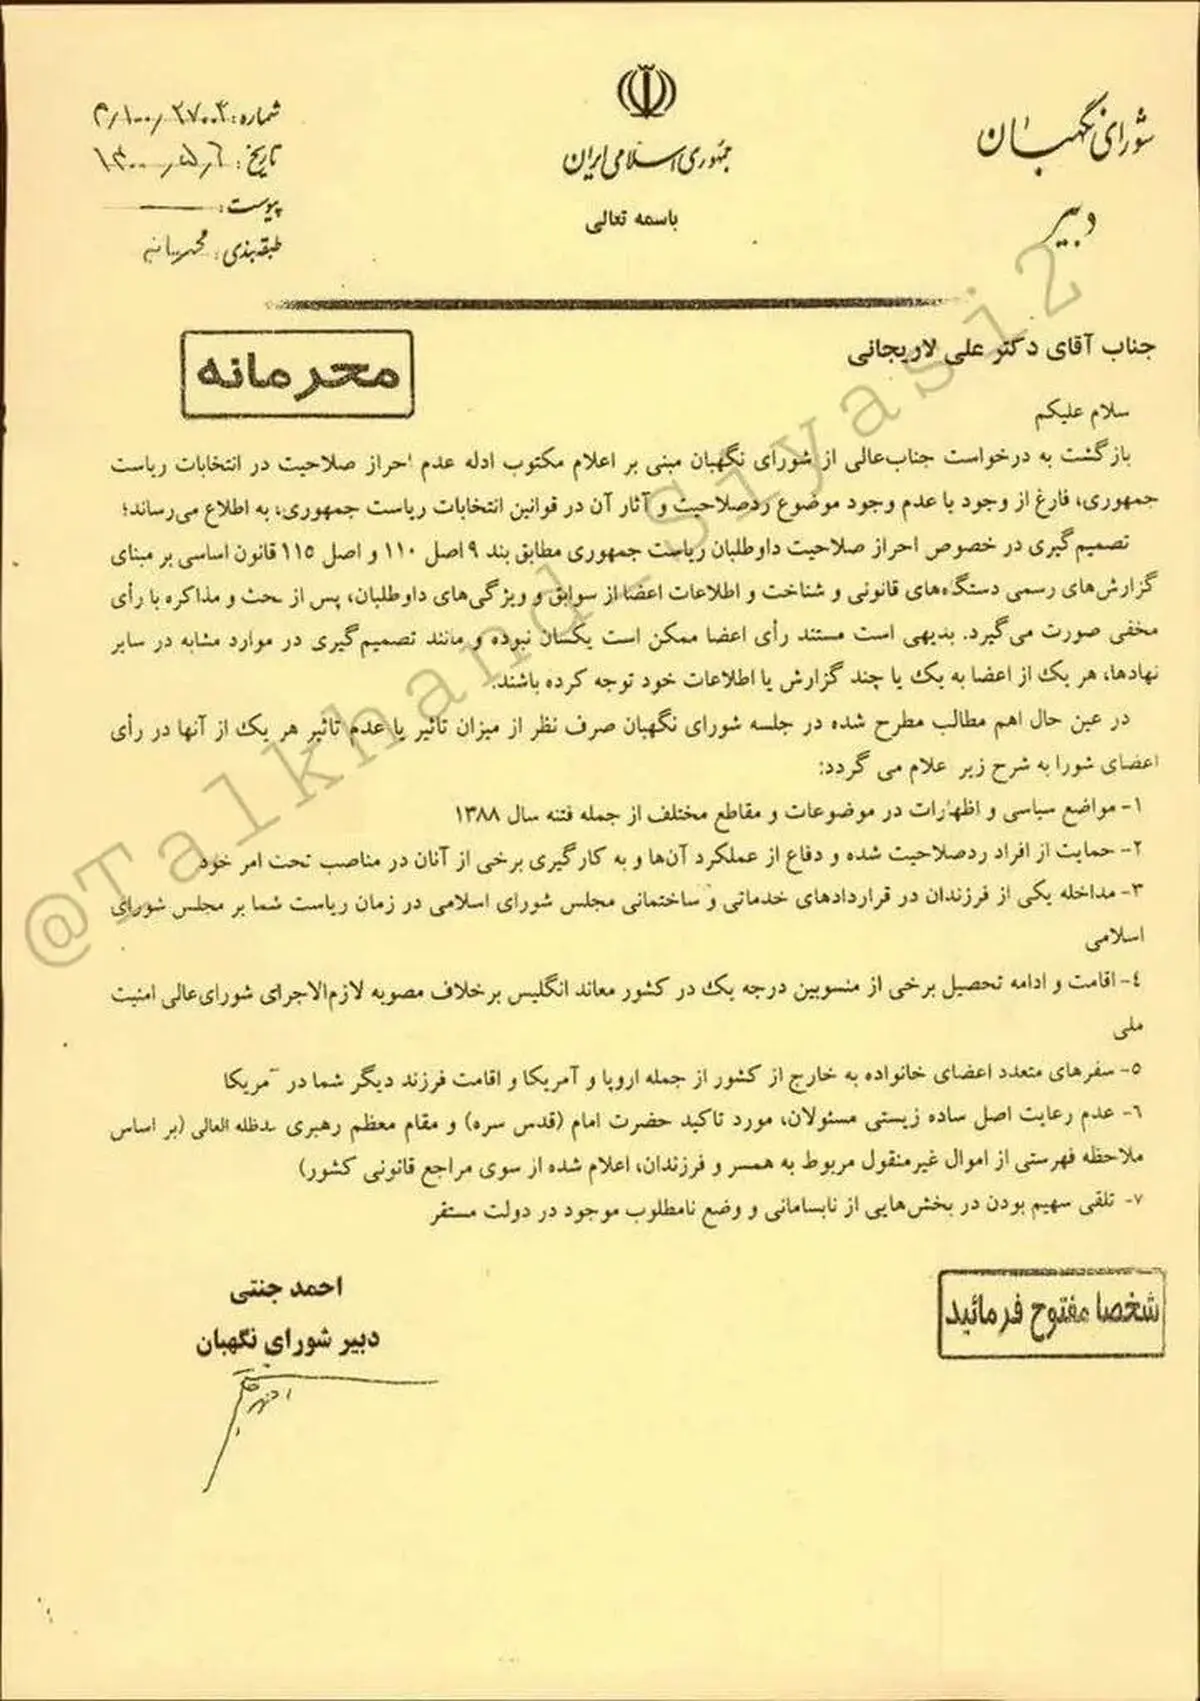 شورای نگهبان
دبیر
جمهوری اسلامی ایران
باسمه تعالی
شماره: ۲۷۰۰۴/۱۰۰/م
تاریخ: ۱۴۰۰/۵/۶
پیوست:
طبقه‌بندی: محرمانه
محرمانه
جناب آقای دکتر علی لاریجانی
سلام علیکم
بازگشت به درخواست جناب‌عالی از شورای نگهبان مبنی بر اعلام مکتوب ادله عدم احراز صلاحیت در انتخابات ریاست
جمهوری، فارغ از وجود یا عدم وجود موضوع ردصلاحیت و آثار آن در قوانین انتخابات ریاست جمهوری، به اطلاع می‌رساند؛
تصمیم‌گیری در خصوص احراز صلاحیت داوطلبان ریاست جمهوری مطابق بند ۹ اصل ۱۱۰ و اصل ۱۱۵ قانون اساسی بر مبنای
گزارش‌های رسمی دستگاه‌های قانونی و شناخت و اطلاعات اعضا از سوابق و ویژگی‌های داوطلبان، پس از بحث و مذاکره با رأی
مخفی صورت می‌گیرد. بدیهی است مستند رأی اعضا ممکن است یکسان نبوده و مانند تصمیم‌گیری در موارد مشابه در سایر
نهادها، هر یک از اعضا به یک یا چند گزارش یا اطلاعات خود توجه کرده باشند.
در عین حال اهم مطالب مطرح شده در جلسه شورای نگهبان صرف نظر از میزان تاثیر یا عدم تاثیر هر یک از آنها در رأی
اعضای شورا به شرح زیر علام می گردد:
۱- مواضع سیاسی و اظهارات در موضوعات و مقاطع مختلف از جمله فتنه سال ۱۳۸۸
۲- حمایت از افراد ردصلاحیت شده و دفاع از عملکرد آن‌ها و به کارگیری برخی از آنان در مناصب تحت امر خود
۳- مداخله یکی از فرزندان در قراردادهای خدماتی و ساختمانی مجلس شورای اسلامی در زمان ریاست شما بر مجلس شورای
اسلامی
۴- اقامت و ادامه تحصیل برخی از منسوبین درجه یک در کشور معاند انگلیس برخلاف مصوبه لازم‌الاجرای شورای‌عالی امنیت
ملی
۵- سفرهای متعدد اعضای خانواده به خارج از کشور از جمله اروپا و آمریکا و اقامت فرزند دیگر شما در آمریکا
۶- عدم رعایت اصل ساده زیستی مسئولان، مورد تاکید حضرت امام (قدس سره) و مقام معظم رهبری مدظله العالی (بر اساس
ملاحظه فهرستی از اموال غیرمنقول مربوط به همسر و فرزندان، اعلام شده از سوی مراجع قانونی کشور)
۷- تلقی سهیم بودن در بخش‌هایی از نابسامانی و وضع نامطلوب موجود در دولت مستقر
احمد جنتی
دبیر شورای نگهبان
شخصا مفتوح فرمائید
@Talkhand_Siyasi2